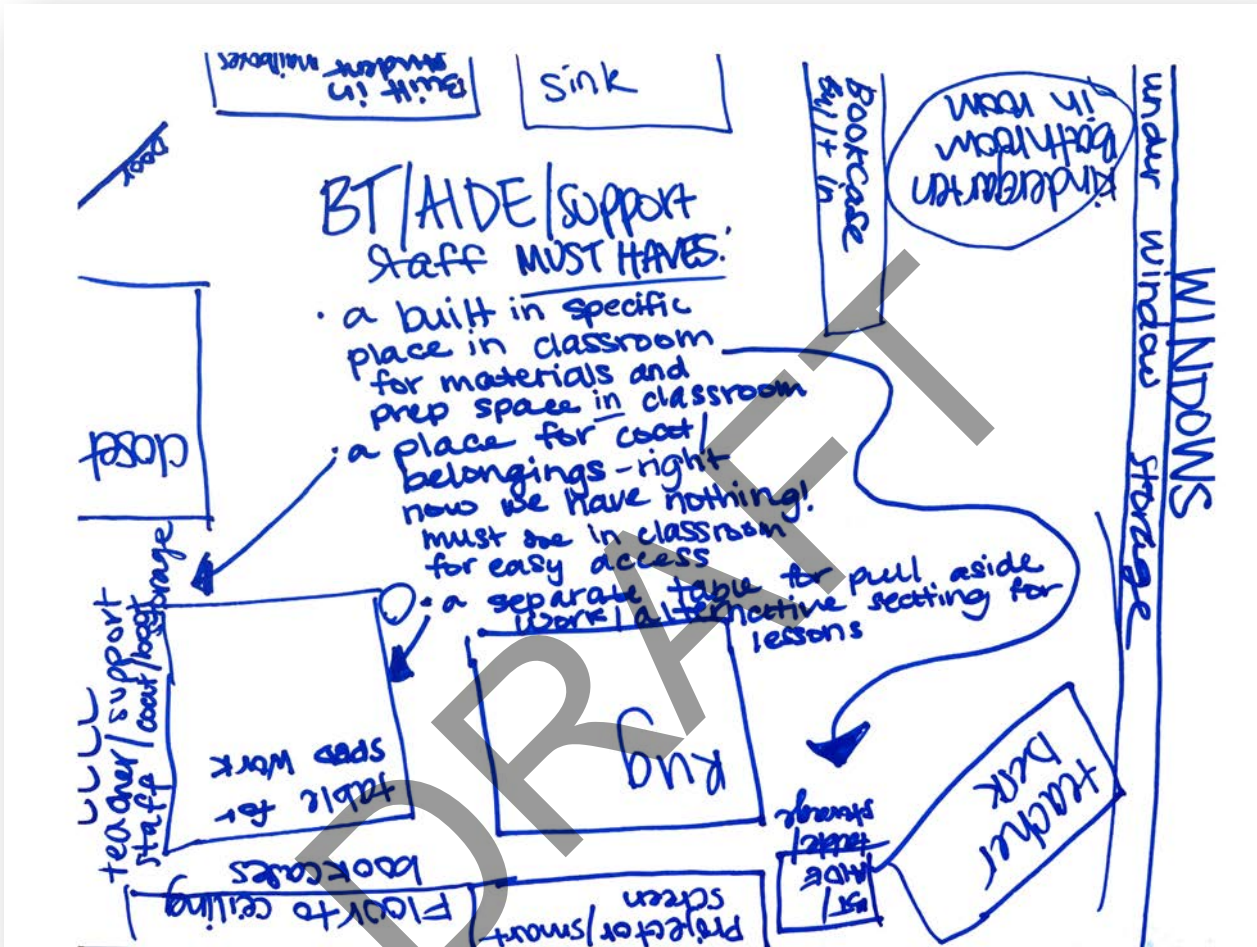 Built in
student mailboxes
sink
Bookcase
built in
Kindergarten
bathroom
in room
under window storage
WINDOWS
Door
BT/AIDE/support
staff MUST HAVES:
• a built in specific
place in classroom
for materials and
prep space in classroom
• a place for coat/
belongings - right
now we have nothing!
must be in classroom
for easy access
• a separate table for pull aside
work/alternative seating for
lessons
closet
teacher/support
staff/coat/boot
storage
table for
sped work
Rug
teacher
Desk
BT/
AIDE
storage
Floor to ceiling
bookcases
Projector/smart
screen
DRAFT